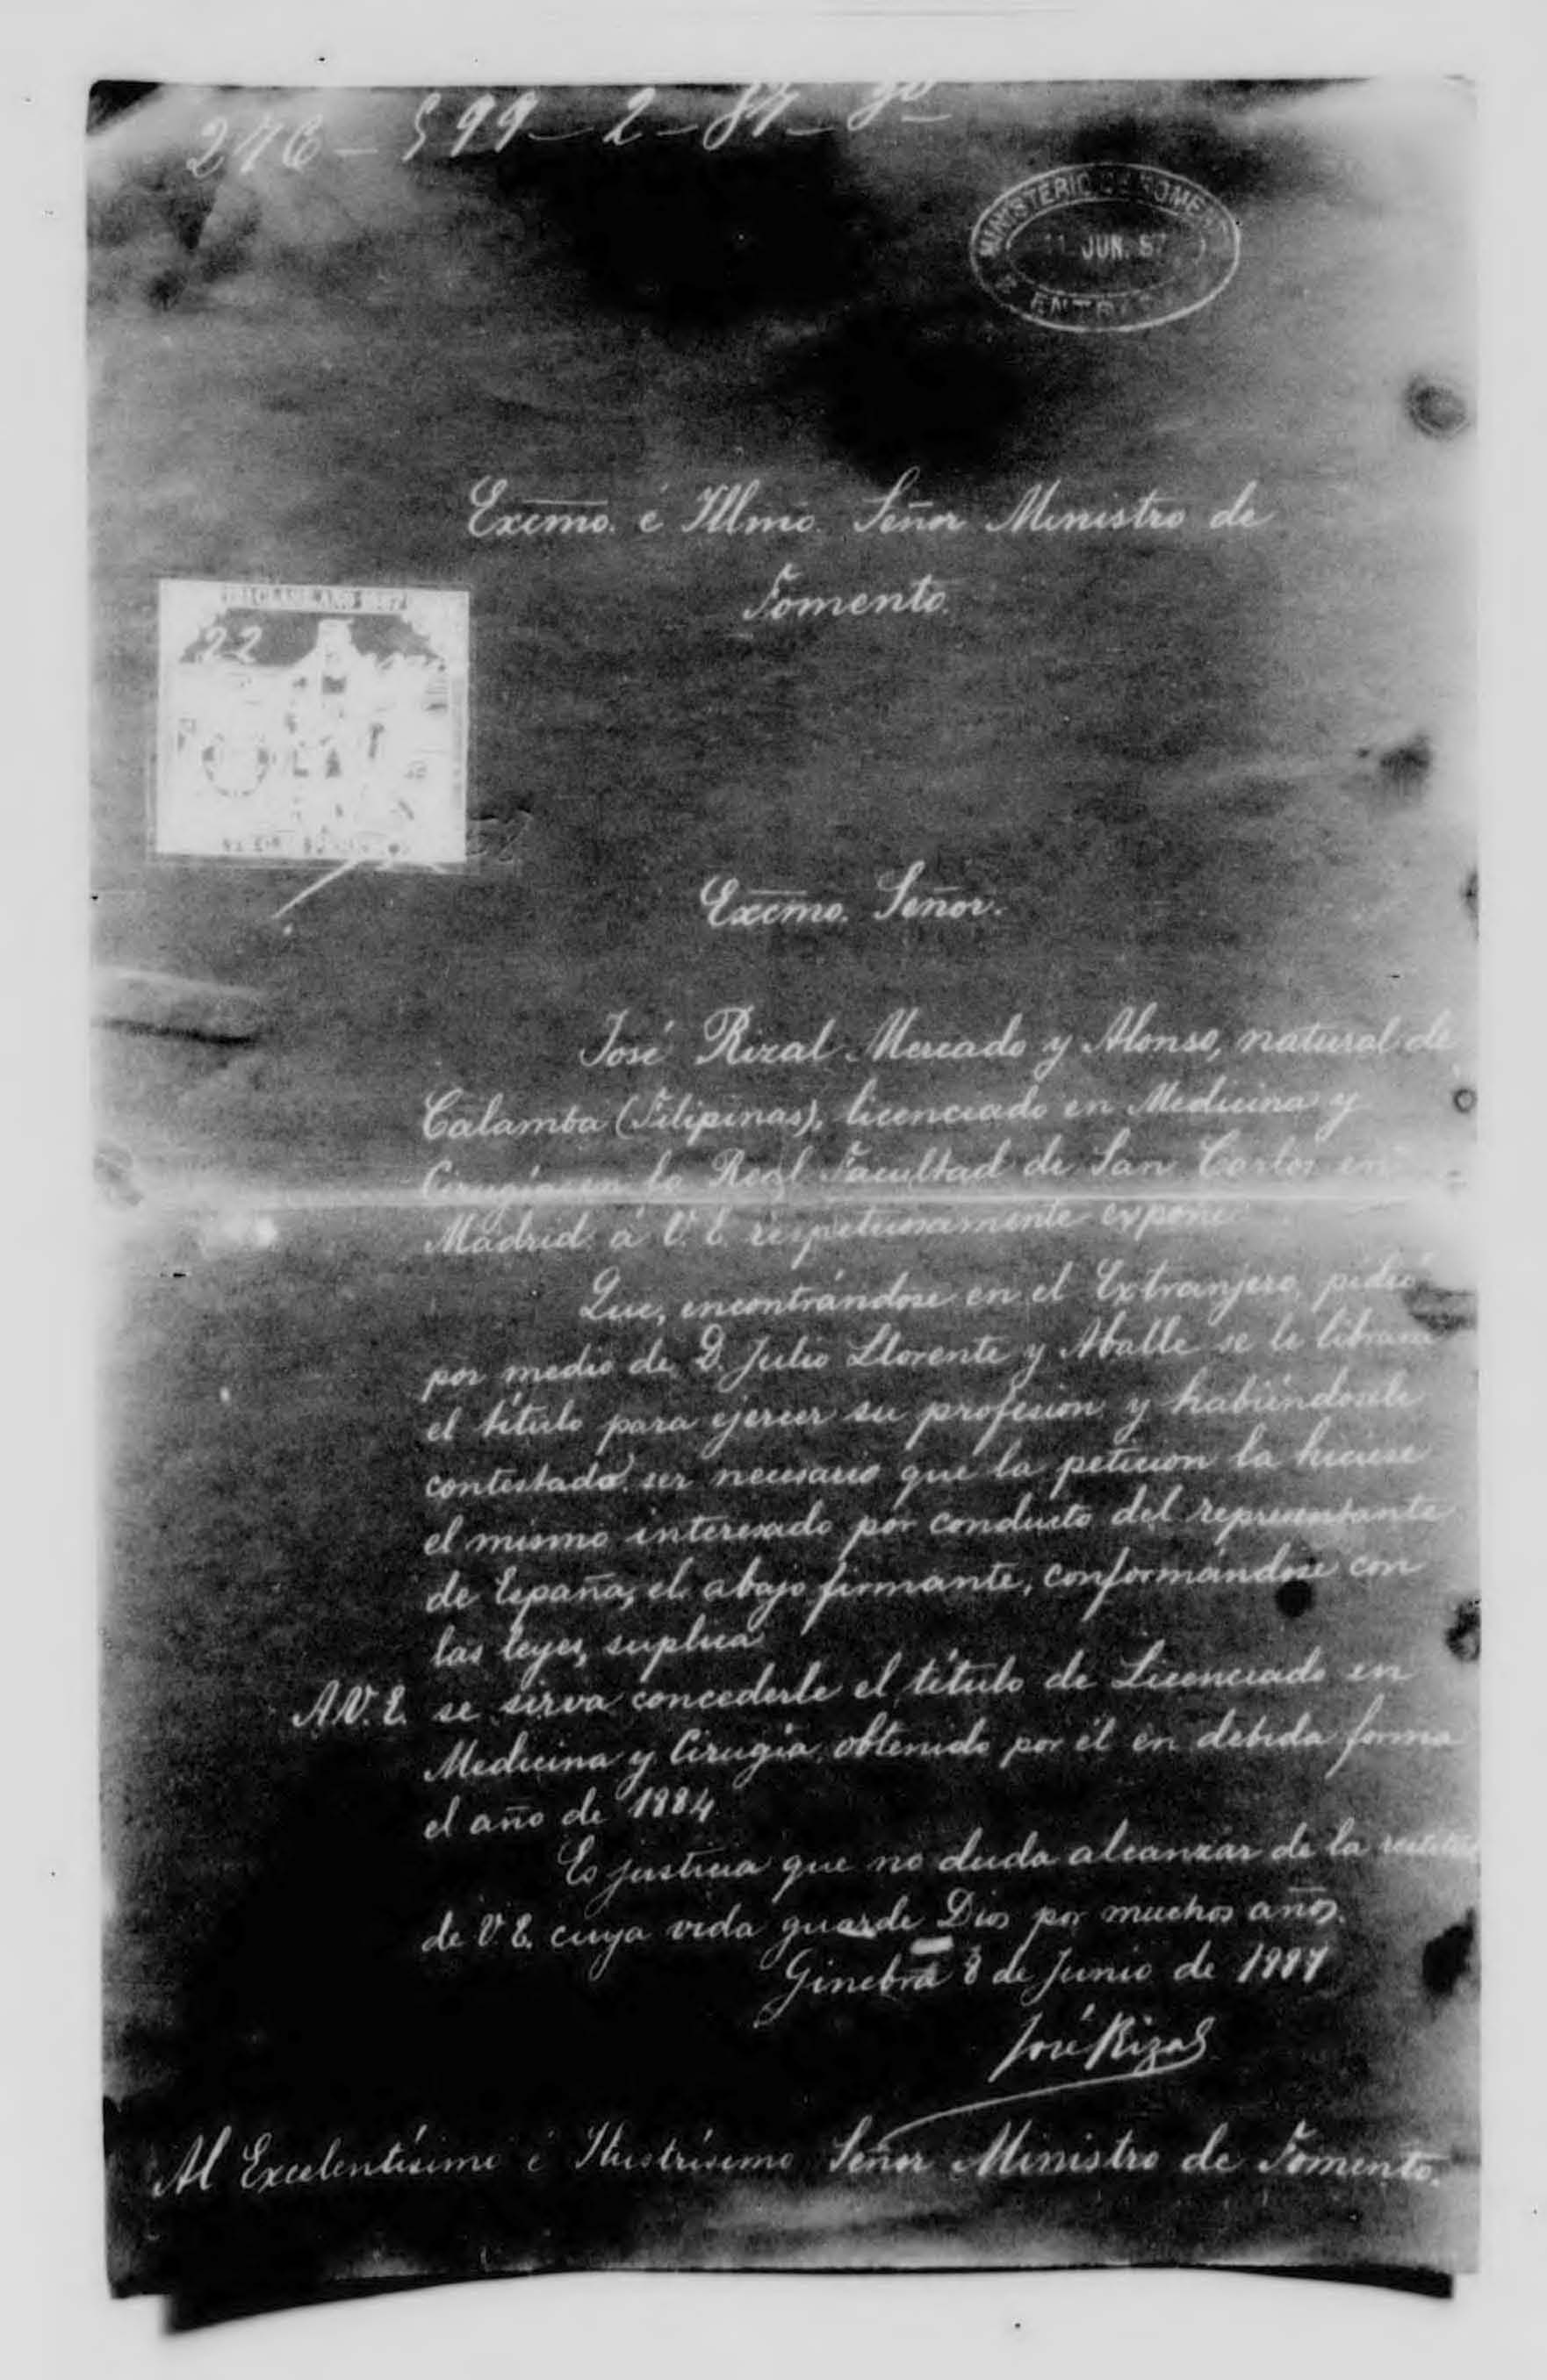 276 - 599 - 2 - 87 - 90
MINISTERIO DE FOMENTO
11 JUN. 87
ENTRADA
Excmo. é Illmo. Señor Ministro de
Fomento.
CLASE AÑO 1887
22
Excmo. Señor.
José Rizal Mercado y Alonso, natural de
Calamba (Filipinas), licenciado en Medicina y
Cirugía en la Real Facultad de San Carlos en
Madrid á V. E. respetuosamente expone
Que, encontrándose en el Extranjero, pidió
por medio de D. Julio Llorente y Aballe se le librara
el título para ejercer su profesion y habiéndosele
contestado ser necesario que la peticion la hiciese
el mismo interesado por conducto del representante
de España, el abajo firmante, conformándose con
las leyes, suplica
A V. E. se sirva concederle el título de Licenciado en
Medicina y Cirugía, obtenido por él en debida forma
el año de 1884
Es justicia que no duda alcanzar de la rectitud
de V. E. cuya vida guarde Dios por muchos años.
Ginebra 8 de Junio de 1887
José Rizal
Al Excelentísimo é Ilustrísimo Señor Ministro de Fomento.